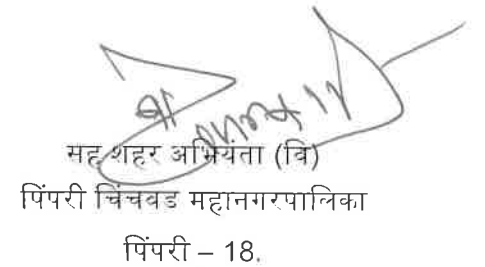 सह शहर अभियंता (वि)
पिंपरी चिंचवड महानगरपालिका
पिंपरी – 18.